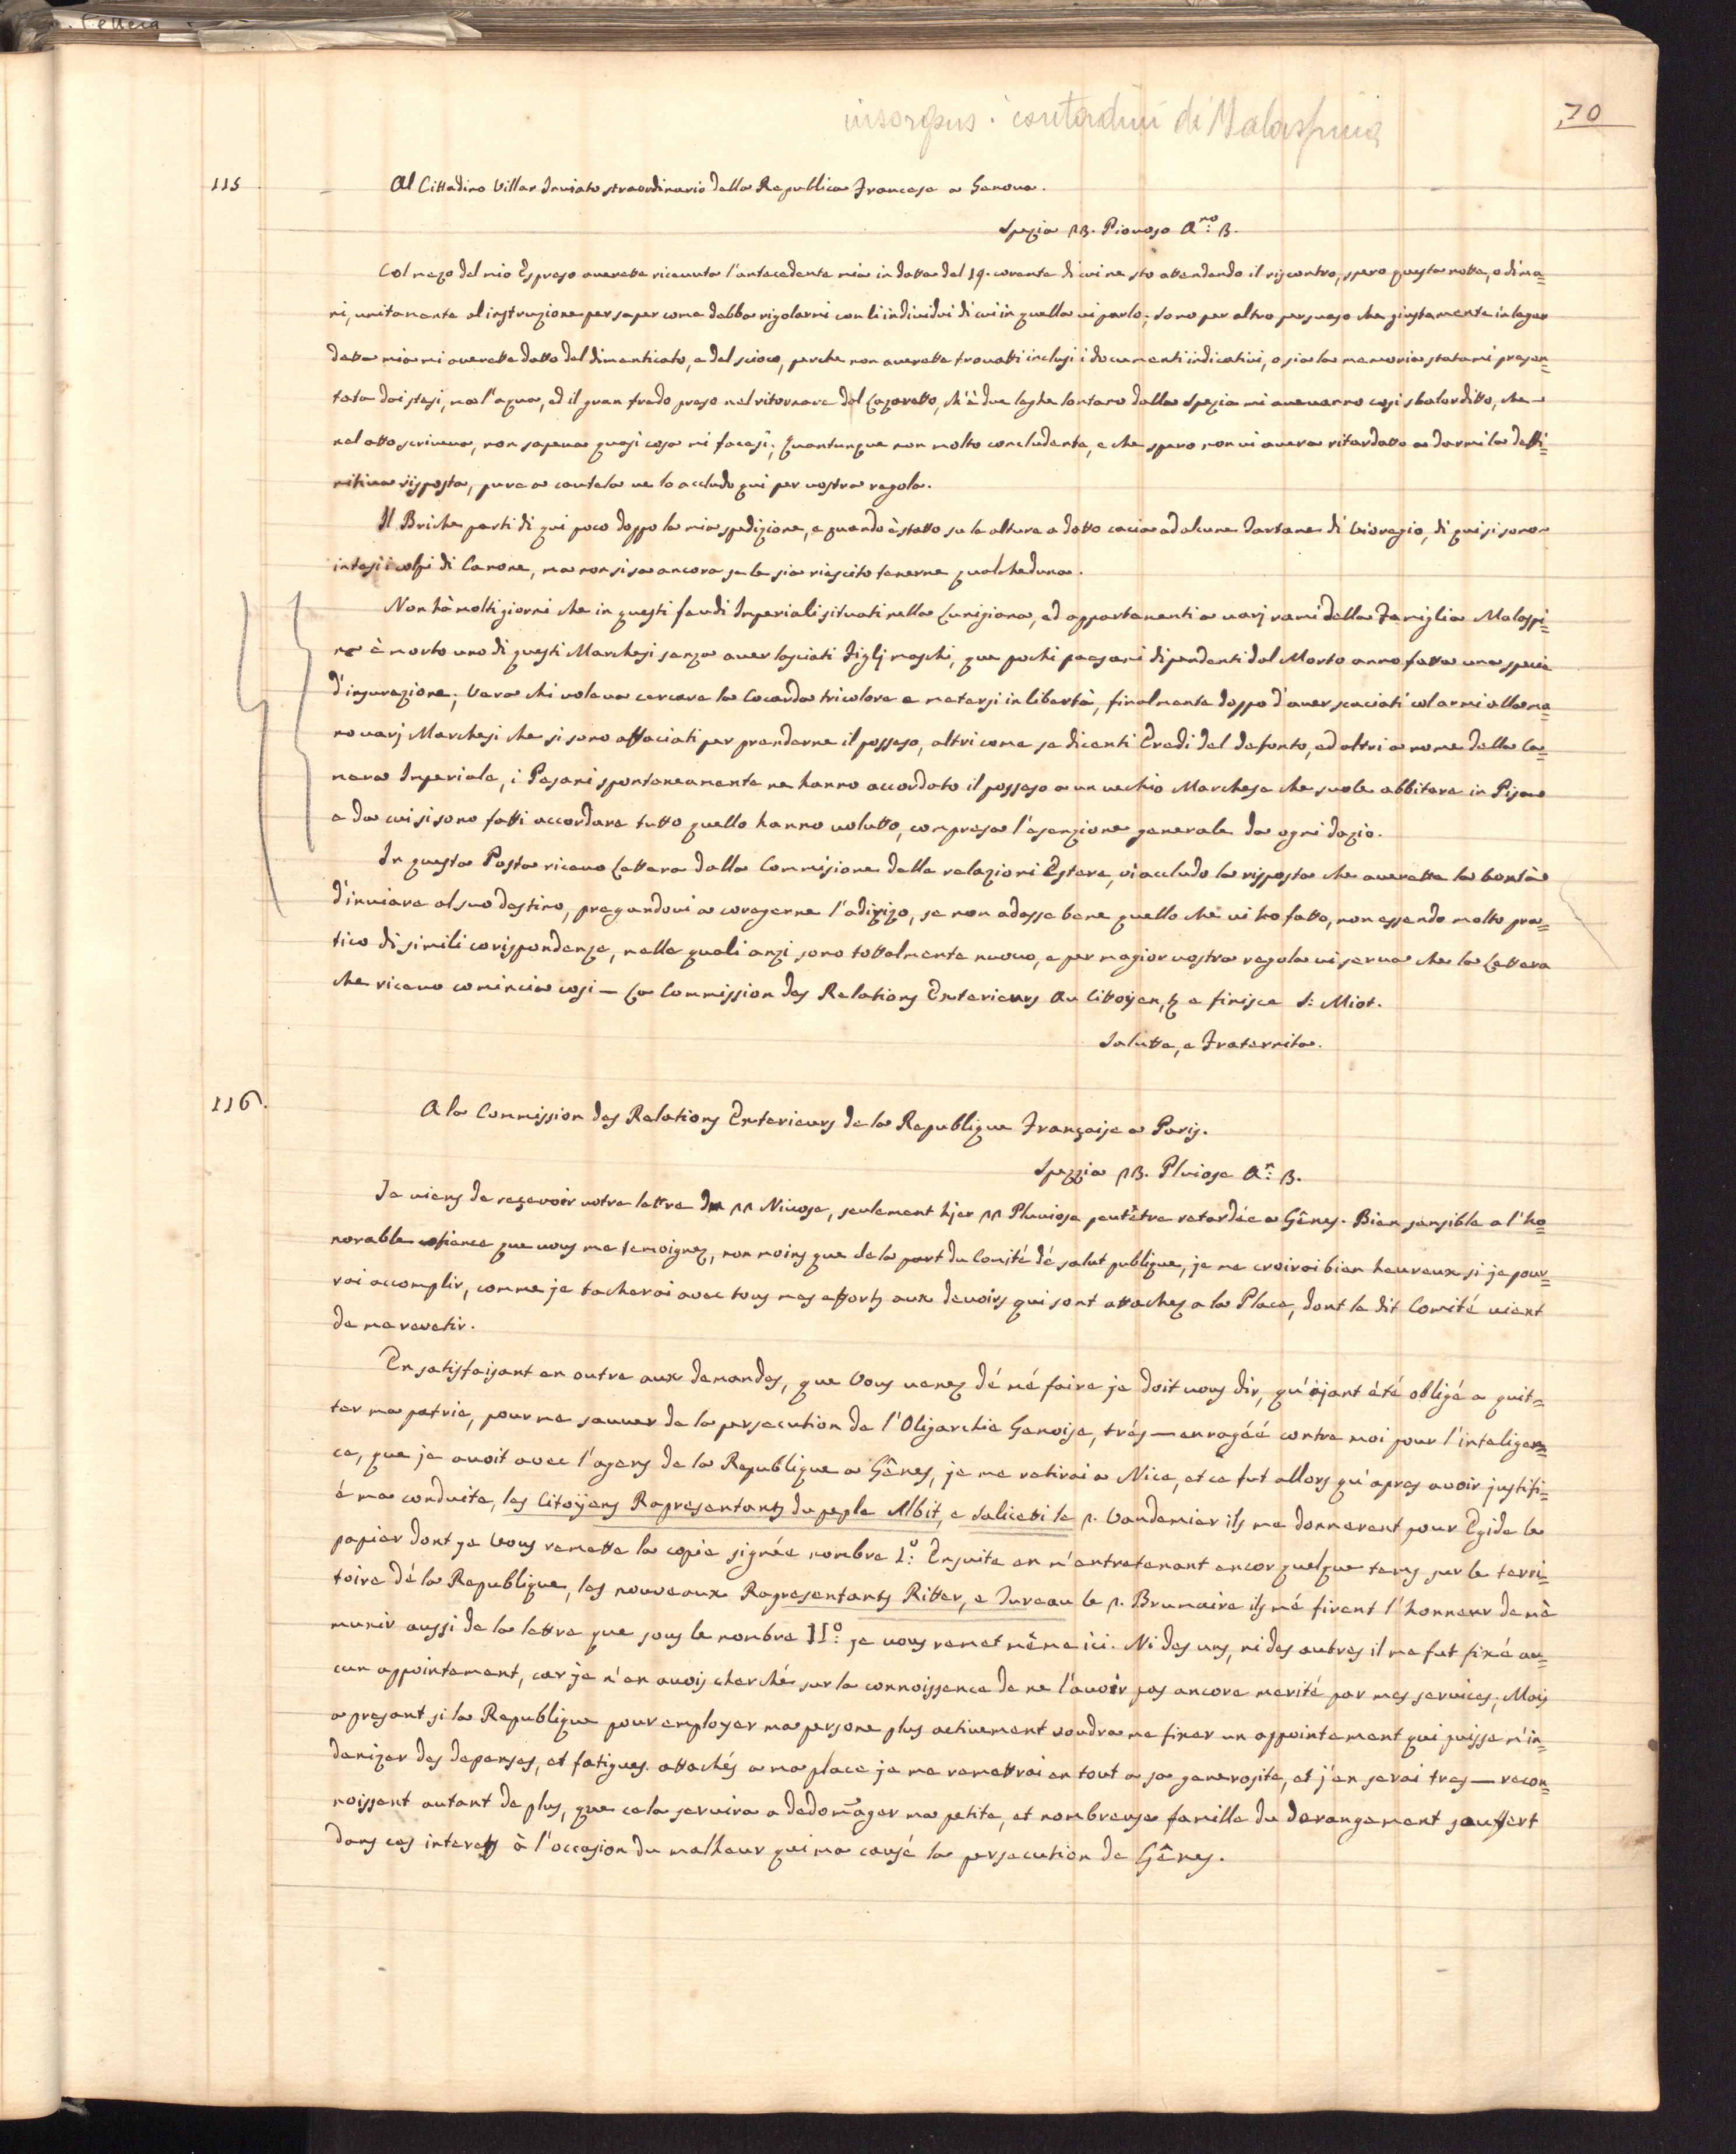 insorgono i contadini di Malaspina
70
115
Al Cittadino Villar Inviato straordinario della Republica Francese a Genova.
Spezia 13. Piovoso A.no 3.
Col mezo del mio Espreso averette ricevuta l'antecedente mia in datta del 19. corente di cui ne sto attendendo il riscontro, spero questa notte, o dima=
ni, unitamente al instruzione per saper come debba rigolarmi con li individui di cui in quella vi parlo; sono per altro persuaso che giustamente in leger
detta mia mi averette datto del dimenticato, e del scioco, perche non averette trovatti inclusi i documenti indicativi, o sia la memoria statami presen=
tata dai stesi, ma l'aqua, ed il gran fredo preso nel ritornare dal Lazaretto, ch'è due leghe lontano dalla Spezia mi avevanno cosi sbalorditto, che
nel atto scriveva, non sapeva quasi cosa mi facesi; Quantunque non molto concludente, e che spero non vi avera ritardatto a darmi la deffi=
nitiva risposta, pure a cautela ve lo accludo qui per vostra regola.
Il Briche parti di qui poco doppo la mia spedizione, e quando è statto su la altura a datto cacia ad alcune Tartane di Viaregio, di qui si sono
intesi i colpi di Canone, ma non si sa ancora se le sia riescito tenerne qualcheduna.
Non hà molti giorni che in questi feudi Imperiali situati nella Lunigiana, ed appartenenti a varj rami della Famiglia Malaspi=
na è morto uno di questi Marchesi senza aver lasciati Figlj maschi, que pochi paesani dipendenti dal Morto anno fatta una specie
d'insurezione; Vera chi voleva cercare la Cocarda tricolore e metersi in libertà, finalmente doppo d'aver scaciati col armi alla ma=
no varj Marchesi che si sono affaciati per prenderne il posseso, altri come se dicenti Eredi del defonto, ed altri a nome della Ca=
mera Imperiale, i Pesani spontaneamente ne hanno accordato il posseso a un vechio Marchese che suole abbitare in Pisa
e da cui si sono fatti accordare tutto quello hanno volutto, compresa l'esenzione generale da ogni dazio.
In questa Posta ricevo Lettera dalla Commisione delle relazioni Estere, vi accludo la risposta che averette la bontà
d'inviare al suo destino, pregandovi a coregerne l'adirizo, se non adasse bene quello che vi ho fatto, non essendo molto pra=
tico di simili corispondenze, nelle quali anzi sono tottalmente nuovo, e per magior vostra regola vi serva che la Lettera
che ricevo comincia cosi — La Commission des Relations Exterieurs Au Citoÿen, & e finisce S: Miot.
Salutte, e Fraternita.
116.
A la Commission des Relations Exterieurs de la Republique Française a Paris.
Spezzia 13. Pluiose An: 3.
Je viens de reçevoir votre lettre du 11 Nivose, seulement hjer 12 Pluviose peutêtre retardée a Gênes. Bien sensible a l'ho=
norable confience que vous me temoignez, non moins que de la part du Comité dé salut publique, je me croirai bien heureux si je pour=
rai accomplir, comme je tacherai avec tous mes efforts aux devoirs qui sont attachez a la Place, dont le dit Comité vient
de me revetir.
En satisfaisant en outre aux demandes, que Vous venez dé mé faire je doit vous dir, qu'ajant été obligé a quit=
ter ma patrie, pour me sauver de la persecution de l'Oligarchie Genoise, trés — enragéé contre moi pour l'inteligen=
ce, que je avoit avec l'agens de la Republique a Gênes, je me retirai a Nice, et ce fut allors qu'apres avoir justifi=
é ma conduite, les Citoÿens Rapresentants du peple Albit, e Saliceti le 1. Vandemier ils me donnerent pour Egide le
papier dont je Vous remette la copie signée nombre I.o Ensuite en m'entretenant encor quelque tems sur le terri=
toire dé la Republique, les nouveaux Rapresentants Ritter, e Tureau le 1. Brumaire ils mé firent l'honneur de mè
munir aussi de la lettre que sous le nombre II.o je vous remet même ici. Ni des uns, ni des autres il me fut fixé au=
cun appointement, car je n'en avois cherché sur la connoissence de ne l'avoir pas ancore merité par mes services; Mais
a present si la Republique pour employer ma persone plus activement voudra me fixer un appointement qui puisse m'in=
denizer des depenses, et fatigues attachés a ma place je me remettrai en tout a sa generosite, et j'en serai tres — recon=
noissent autant de plus, que cela servira a dedomager ma petite, et nombreuse famille du derangement souffert
dans ces interets à l'occasion du malheur qui ma causé la persecution de Gênes.